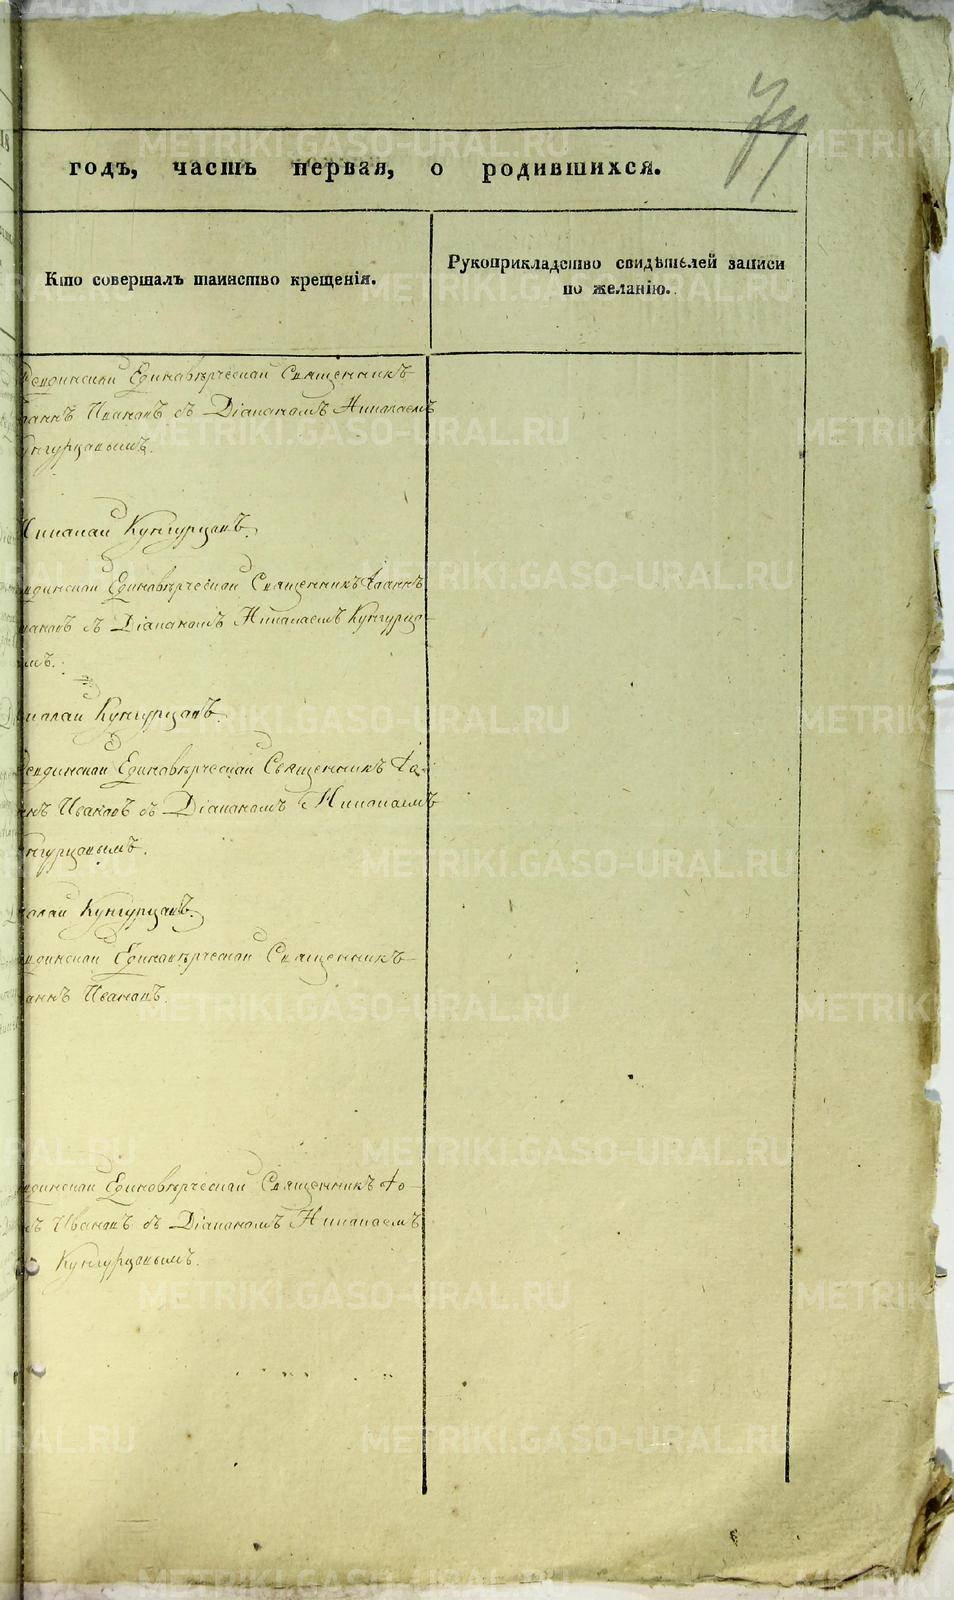 годъ, часть первая, о родившихся.
Кто совершалъ таинство крещенія.
Рукоприкладство свидѣтелей записи
по желанію.
Единовѣрческай Священникъ
Ивановъ съ Діакономъ Николаемъ
Кунгурцовымъ.
Николай Кунгурцовъ.
Единовѣрческай Священникъ Іоаннъ
Ивановъ съ Діакономъ Николаемъ Кунгурцо-
мъ.
Николай Кунгурцовъ.
Единовѣрческай Священникъ Іоа-
ннъ Ивановъ съ Діакономъ Николаемъ
Кунгурцовымъ.
Николай Кунгурцовъ.
Единовѣрческай Священникъ
Ивановъ.
Единовѣрческай Священникъ Іо-
Ивановъ съ Діакономъ Николаемъ
Кунгурцовымъ.
METRIKI.GASO-URAL.RU